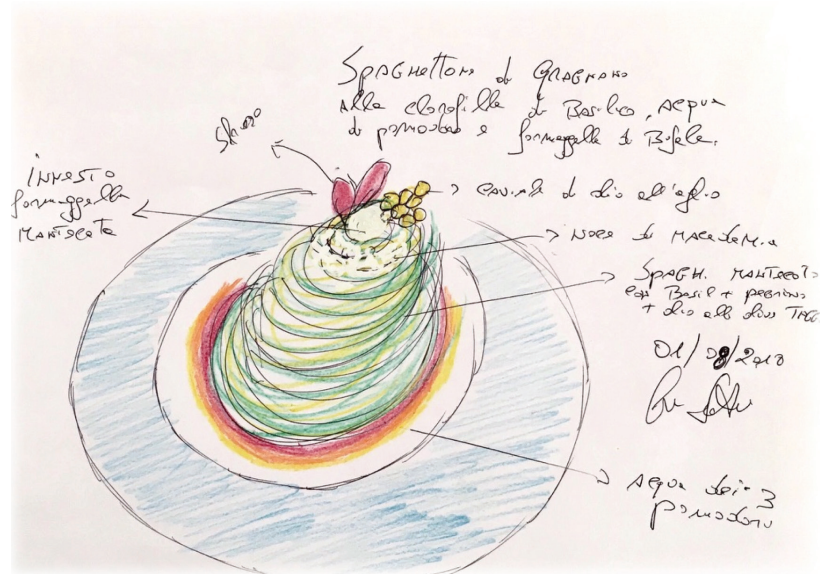 Spaghettone di Gragnano
alla clorofilla di Basilico, acqua
di pomodoro e formaggella di Bufala.
INNESTO
formaggella
MANTECATA
caviale di olio all'aglio
noce di Macadamia
Spagh. mantecato
con Basil + pecorino
+ olio alle olive
01/08/2010
Acqua dei 3
pomodori